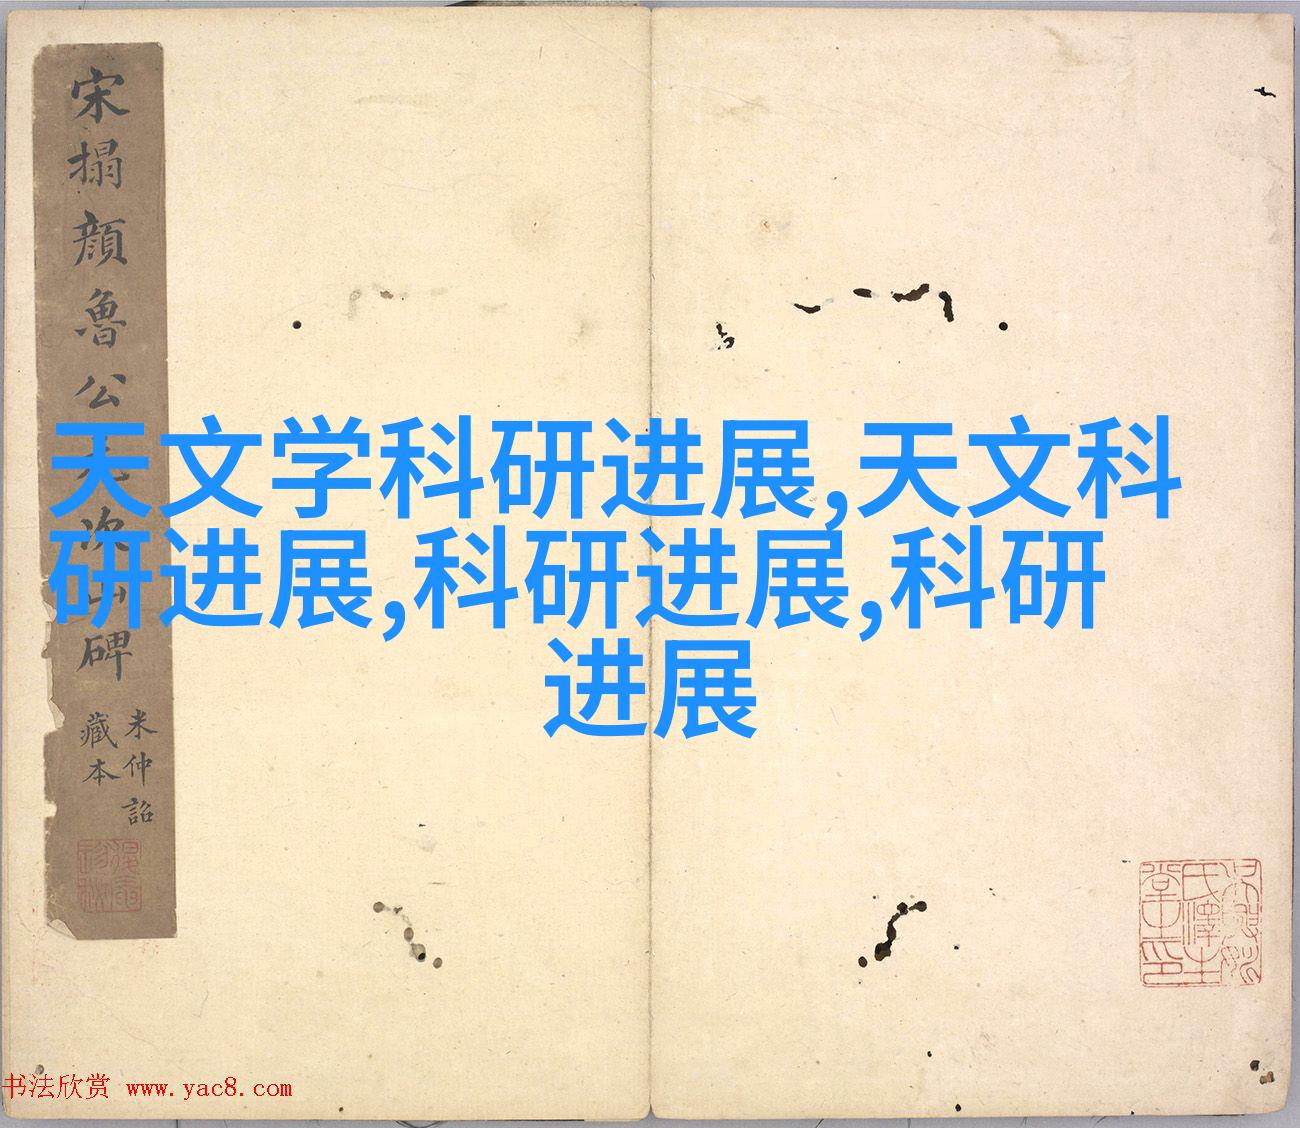 宋搨顔魯公
次山碑
米仲詔
藏本
天文学科研进展,天文科
研进展,科研进展,科研
进展
书法欣赏 www.yac8.com